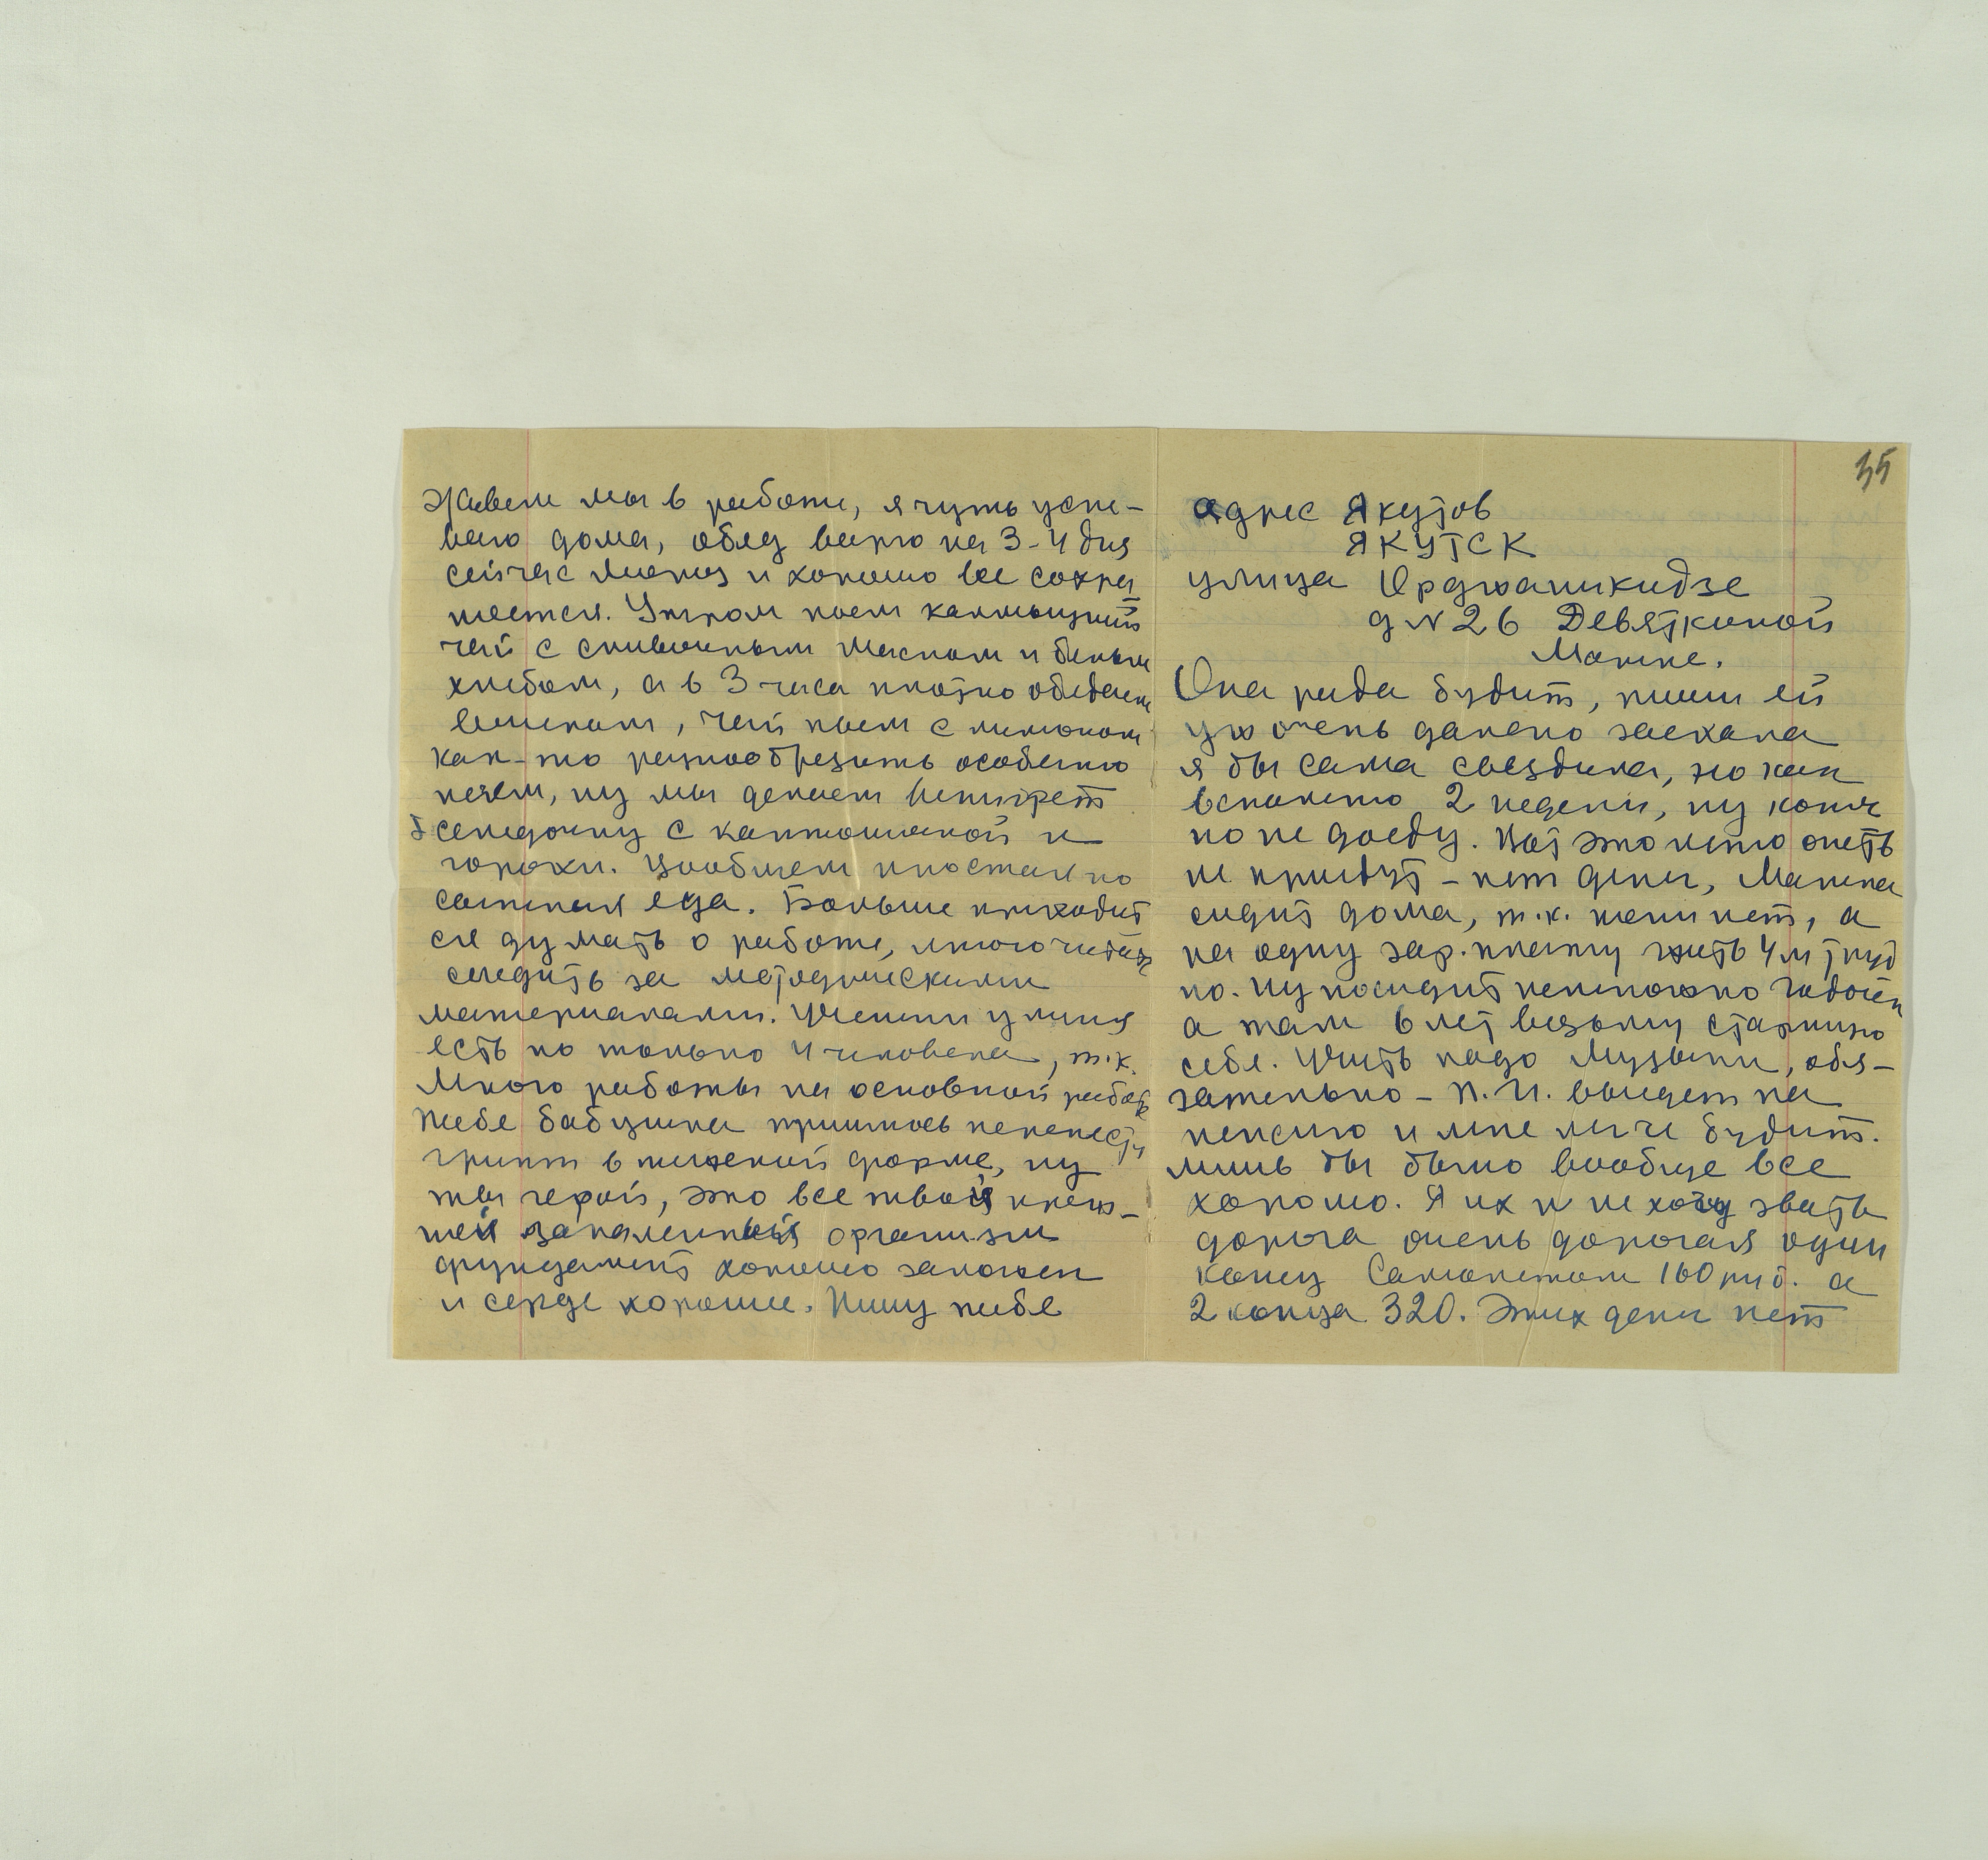 Живем мы в работе, я чуть успе-
ваю дома, обед варю на 3-4 дня
сейчас мороз и хорошо все сохра
няется. Утром пьем калмыцкий
чай с сливочным маслом и белым
хлебом, а в 3 часа плотно обедаем
вечером, чай пьем с лимоном
как-то разнообразить особенно
нечем, ну мы делаем винигрет
селедочку с картошкой и
горохи. Вообщем простая но
сытная еда. Больше приходит
ся думать о работе, много читать
следить за методическими
материалами. Ученики у меня
есть но только 4 человека, т.к.
много работы на основной работе
Тебе бабушка пришлось перенести
грипп в тяжелой форме, ну
ты герой, это все твой креп-
кий закаленный организм
фундамент хорошо заложен
и серде хорошее. Пишу тебе
35
Адрес Якутов
ЯКУТСК
улица Орджаникидзе
д N 26 Девяткиной
Марине.
Она рада будит, пиши ей
уж очень далеко заехала
я бы сама съездила, но как
вспомню 2 недели, ну конеч
но не доеду. Вот это лето опеть
не приедут - нет денег, Марина
сидит дома, т.к. няни нет, а
на одну зар.плату жить 4м труд
но. Ну посидит немножко годочек
а там 6 лет возьму старшую
себе. Учить надо музыки, обя-
зательно - П.И. выидет на
пенсию и мне легче будит.
лишь бы было вообще все
хорошо. Я их и не хочу звать
дорога очень дорогая один
конец самолетом 160 руб. а
2 конца 320. Этих денег нет